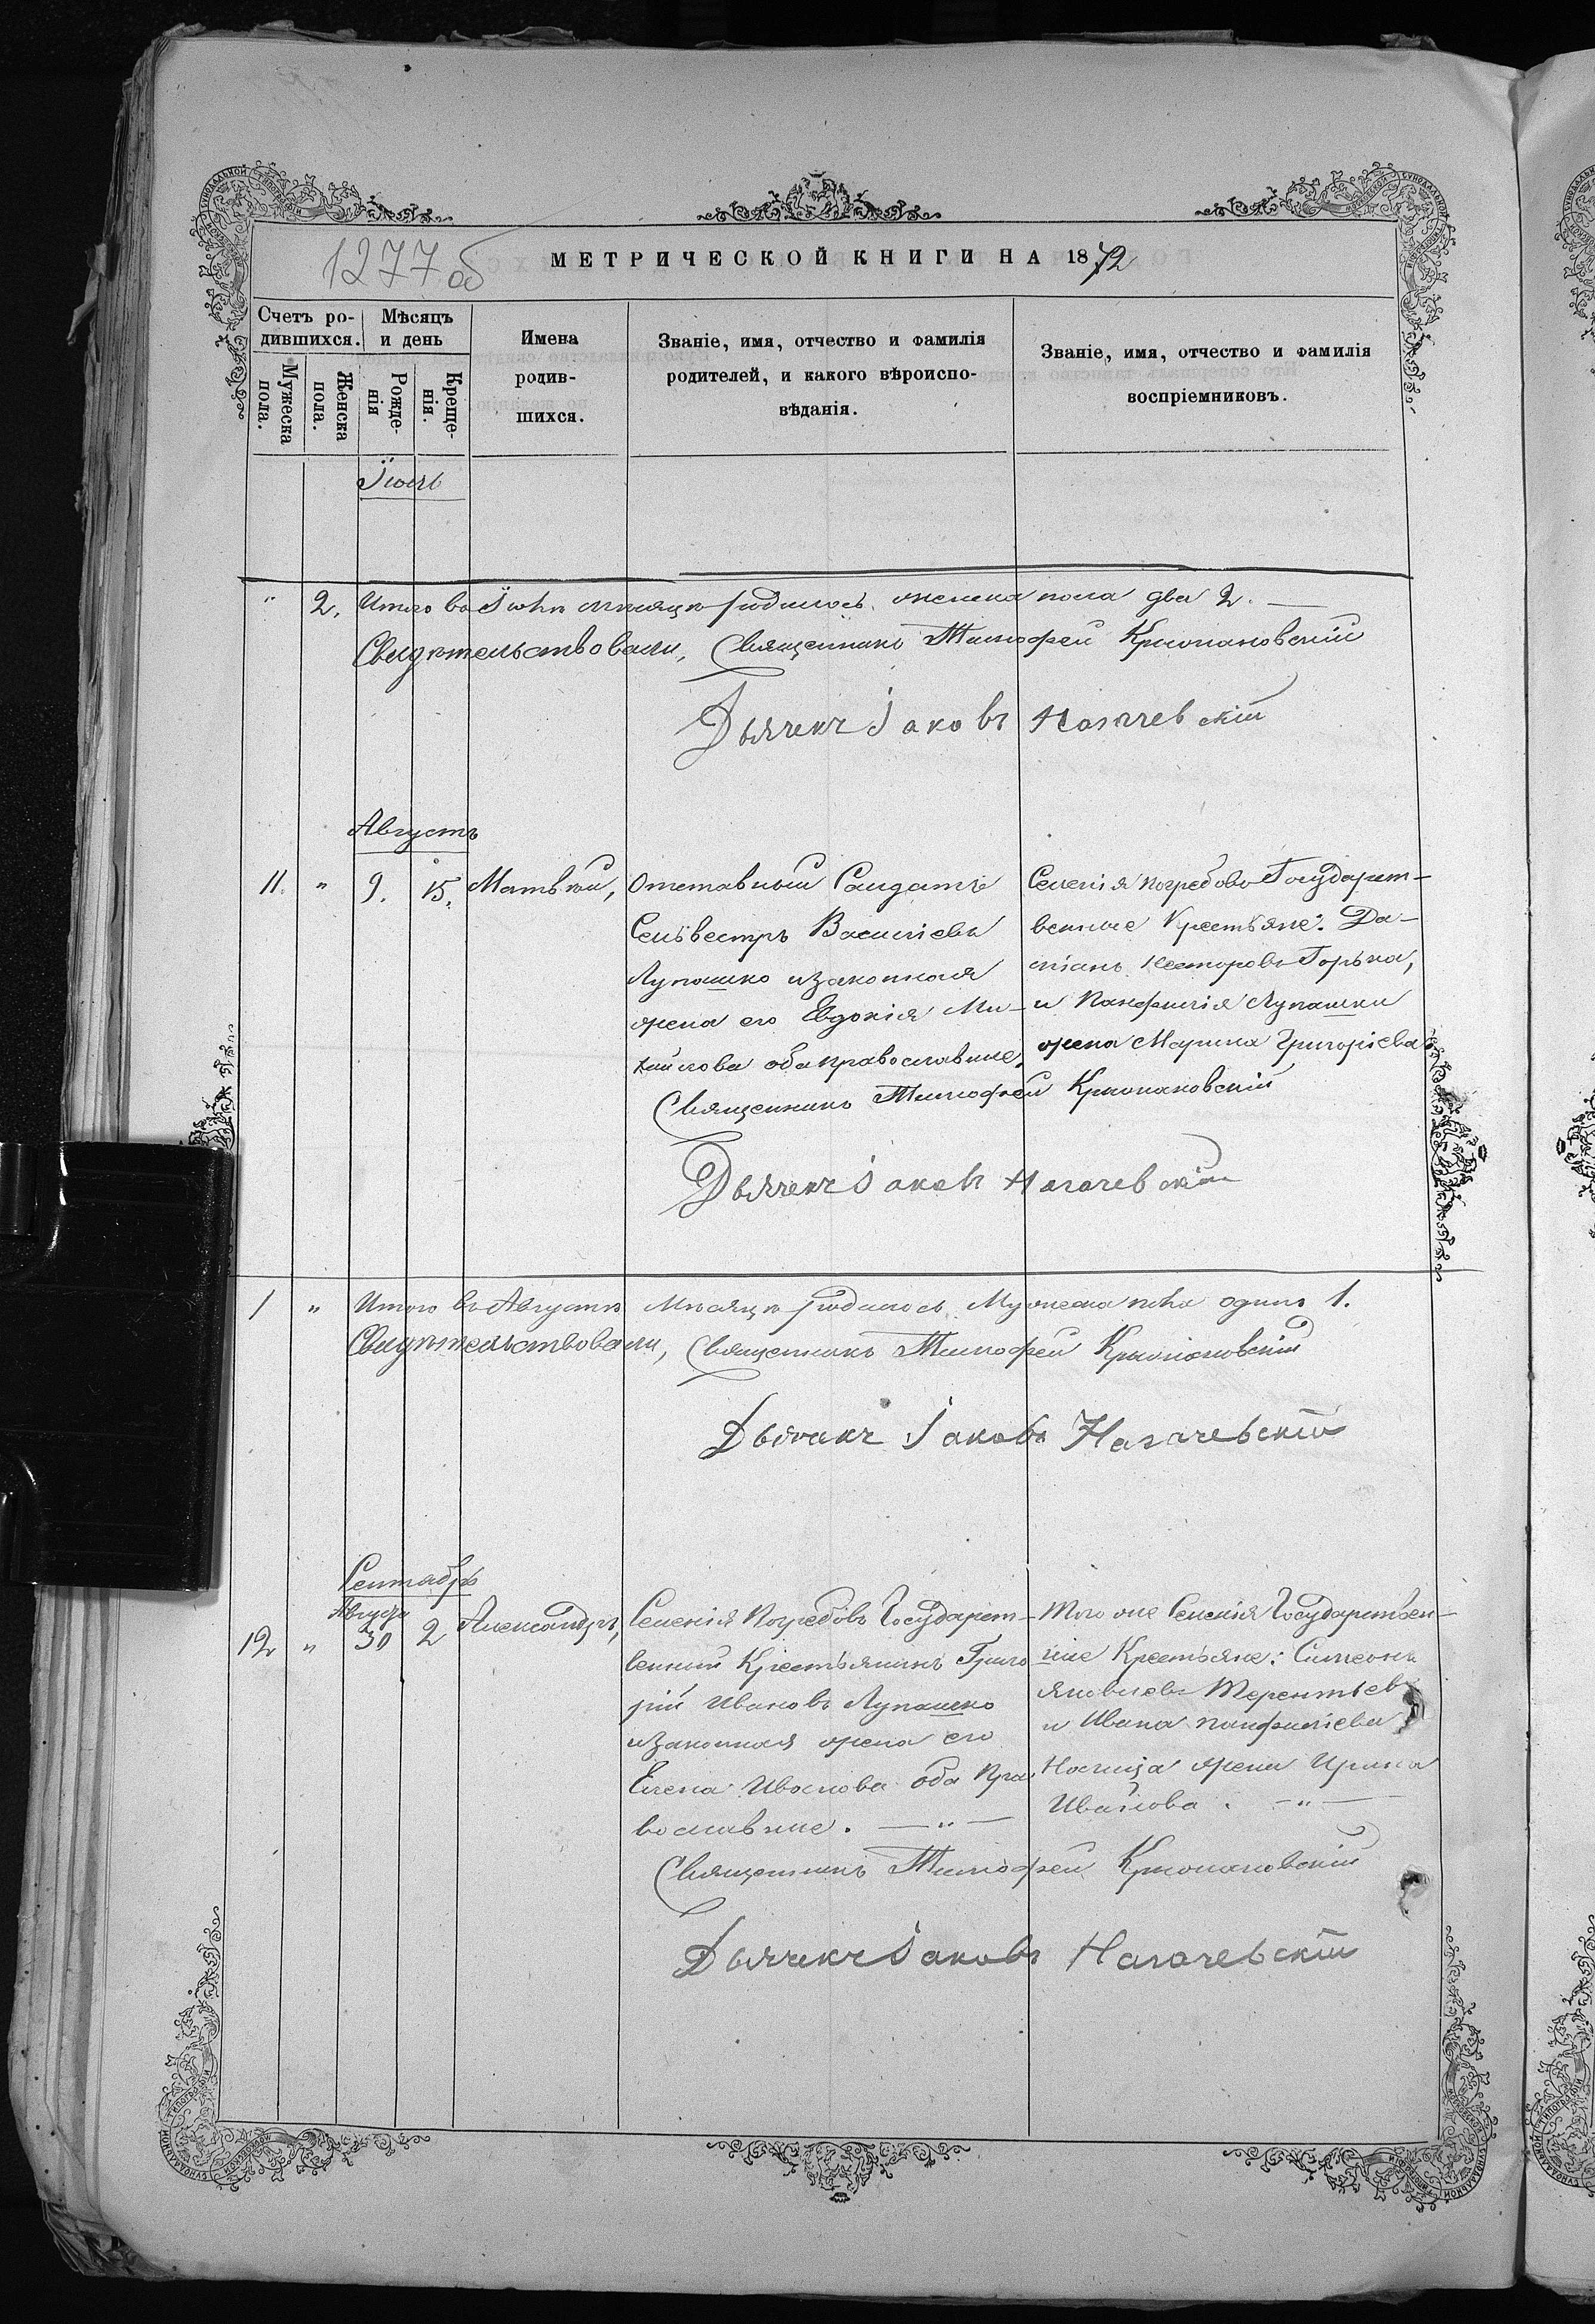 1277 об
МЕТРИЧЕСКОЙ КНИГИ НА 1872
Счетъ ро-
дившихся.
Мѣсяцъ
и день
Мужеска
пола.
Женска
пола.
Рожде-
нія
Креще-
нія.
Имена
родив-
шихся.
Званіе, имя, отчество и фамилія
родителей, и какого вѣроиспо-
вѣданія.
Званіе, имя, отчество и фамилія
воспріемниковъ.
Іюль
" 2. Итого въ Іюлѣ мѣсяцѣ родилось женска пола два 2. —
Свидѣтельствовали, Священникъ Тимофей
Дьячекъ Іаковъ
Августъ
11. " 9. 15. Матвѣй,
Отставный Солдатъ
Сельвестръ Василіевъ
Лупашко и законная
жена его Евдокія Ми-
хайлова оба православные,
Селенія Погребовъ Государст-
венные Крестьяне: Да-
міанъ Несторовъ Горька,
и Панфилія Лупашки
жена Марина Григоріева
Священникъ Тимофей
Дьячекъ Іаковъ
1 " Итого въ Августѣ Мѣсяцѣ родилось Мужеска пола одинъ 1.
Свидѣтельствовали, Священникъ Тимофей
Дьячекъ Іаковъ
Сентябрь
Августа
12 " 30 2 Александръ,
Селенія Погребовъ Государст-
венный Крестьянинъ Григо
рій Ивановъ Лупашко
и законная жена его
Елена Иванова оба Пра
вославные. — " —
Того же Селенія Государствен-
ные Крестьяне: Симеонъ
Яковлевъ Терентьев
и Ивана Панфиліева
жена Ирина
Иванова. — " —
Священникъ Тимофей
Дьячекъ Іаковъ